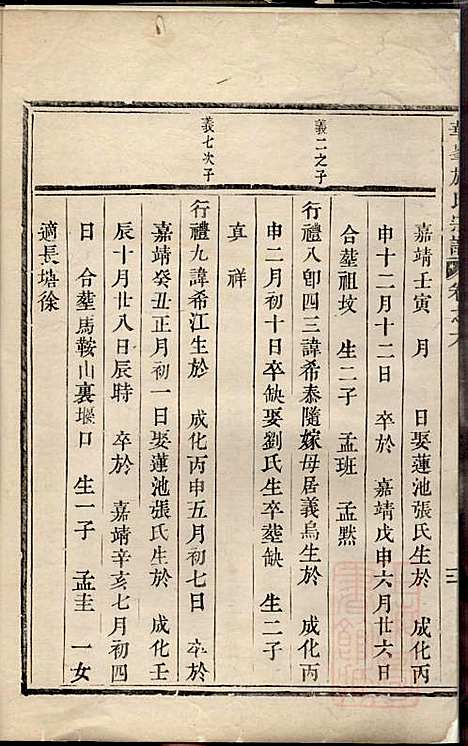 氏宗譜
卷之六
三
嘉靖壬寅 月 日娶蓮池張氏生於 成化丙
申十二月十二日 卒於 嘉靖戊申六月廿六日
合塟祖坟 生二子 孟班 孟黙
義二之子
行禮八卽四三諱希泰隨嫁母居義烏生於 成化丙
申二月初十日卒缺娶劉氏生卒塟缺 生二子
真 祥
義七次子
行禮九諱希江生於 成化丙申五月初七日 卒於
嘉靖癸丑正月初一日娶蓮池張氏生於 成化壬
辰十月廿八日辰時 卒於 嘉靖辛亥七月初四
日 合塟馬鞍山裏堰口 生一子 孟圭 一女
適長塘徐